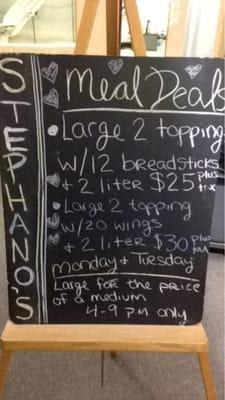 STEPHANO'S
Meal Deals
Large 2 topping
w/12 breadsticks
+ 2 liter $25 plus tax
Large 2 topping
w/20 wings
+ 2 liter $30 plus tax
monday + Tuesday
Large for the price
of a medium
4-9 PM only